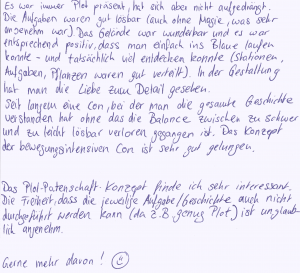 Es war immer Plot präsent, hat sich aber nicht aufgedrängt.
Die Aufgaben waren gut lösbar (auch ohne Magie, was sehr
angenehm war). Das Gelände war wunderbar und es war
entsprechend positiv, dass man einfach ins Blaue laufen
konnte - und tatsächlich viel entdecken konnte (Stationen,
Aufgaben, Pflanzen waren gut verteilt). In der Gestaltung
hat man die Liebe zum Detail gesehen.
Seit langem eine Con, bei der man die gesamte Geschichte
verstanden hat ohne das die Balance zwischen zu schwer
und zu leicht lösbar verloren gegangen ist. Das Konzept
der bewegungsintensiven Con ist sehr gut gelungen.
Das Plot-Patenschaft-Konzept finde ich sehr interessant.
Die Freiheit, dass die jeweilige Aufgabe/Geschichte auch nicht
durchgeführt werden kann (da z.B. genug Plot) ist unglaub-
lich angenehm.
Gerne mehr davon! ☺